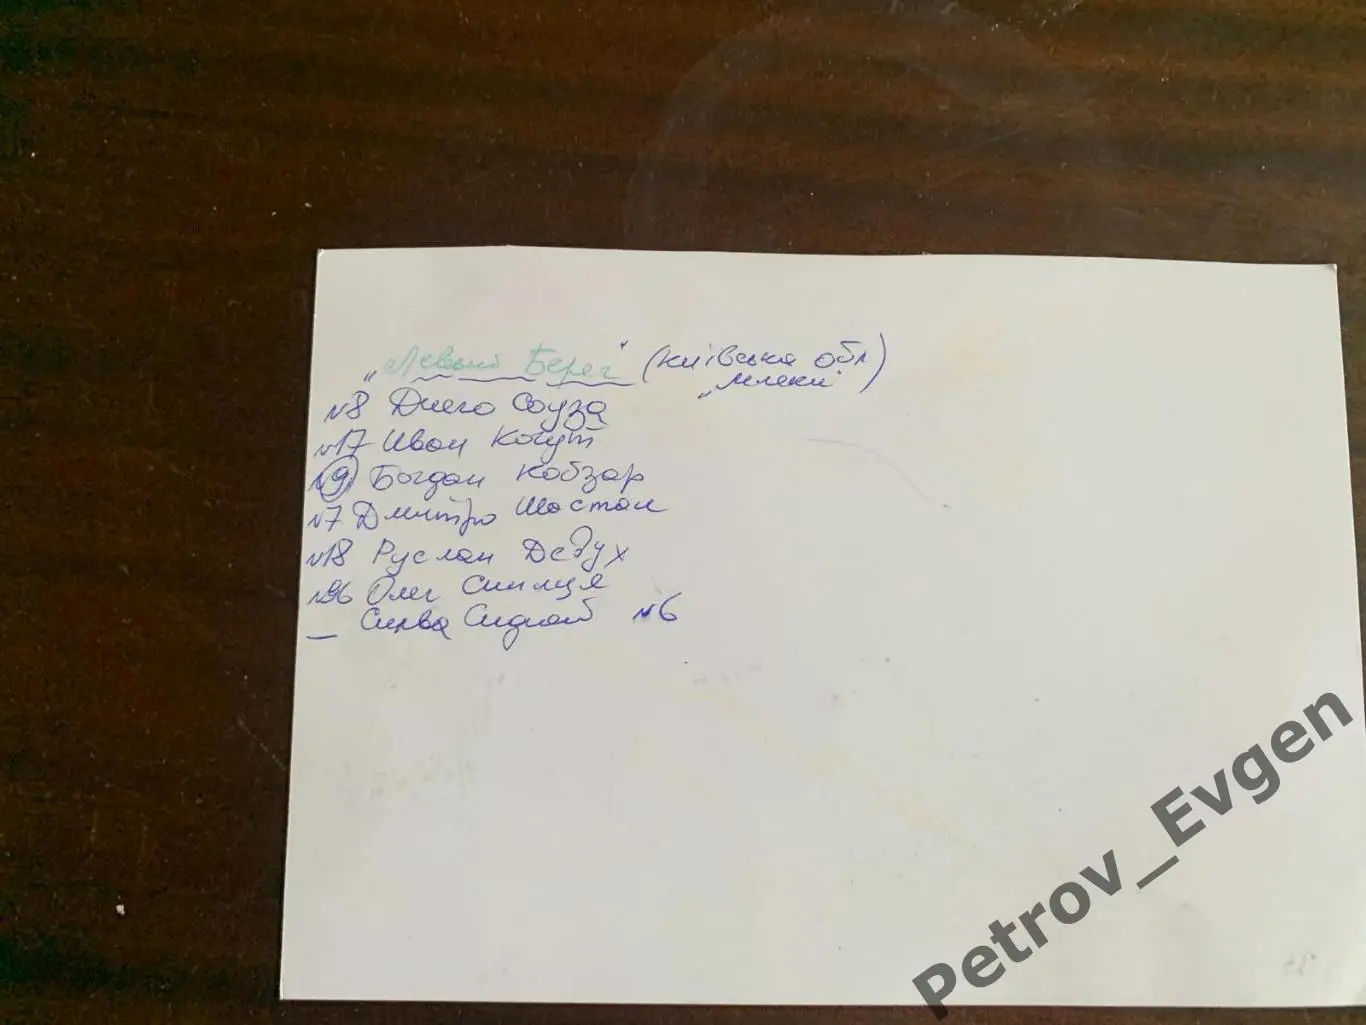 "Левый Берег" (Київська обл)
"Млеки"
№8 Диего Соуза
№17 Иван Когут
№9 Богдан Кобзар
№7 Дмитро Шастал
№18 Руслан Дедух
№96 Олег Синиця
— Силва Сидней №6
Petrov_Evgen